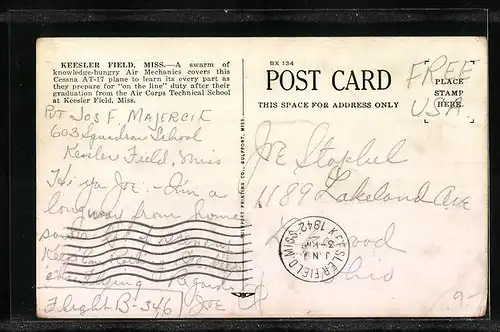 KEESLER FIELD, MISS.—A swarm of
knowledge-hungry Air Mechanics covers this
Cessna AT-17 plane to learn its every part as
they prepare for "on the line" duty after their
graduation from the Air Corps Technical School
at Keesler Field, Miss.
Pvt Jos F. Majercik
603 Squadron School
Kessler Field, Miss
Hi ya Joe:- I'm a
long way from home
Keep
Flight B-346 / Joe
GULFPORT PRINTING CO., GULFPORT, MISS.
BX 134
POST CARD
THIS SPACE FOR ADDRESS ONLY
FREE
USA
PLACE
STAMP
HERE
Joe Staphel
1189 Lakeland Ave
Ohio
KEESLER FIELD, MISS.
1942
9-